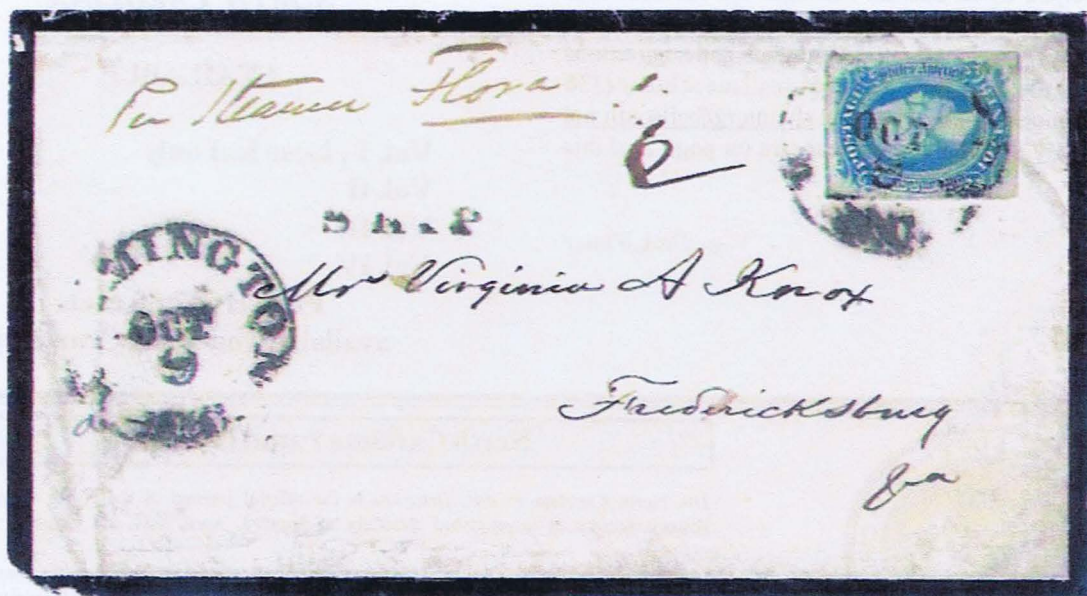 Per Steamer Flora
6
SHIP
MINGTON
OCT
9
Mrs Virginia A Knox
Fredericksburg
Va